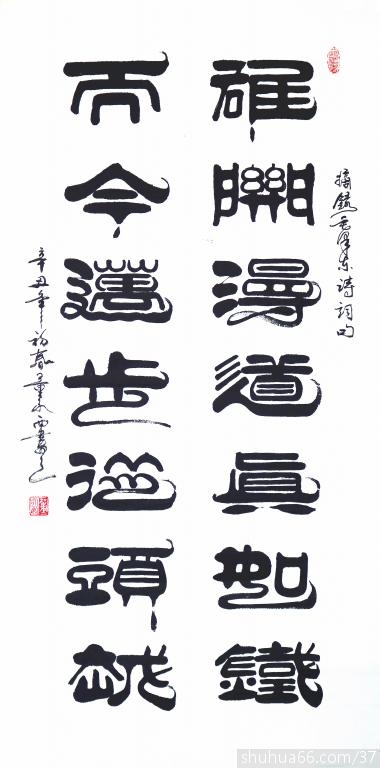 摘錄毛澤東詩詞句
雄關漫道真如鐵
而今邁步從頭越
辛丑年初春
shuhua66.com/37